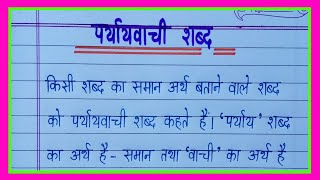 पर्यायवाची शब्द
किसी शब्द का समान अर्थ बताने वाले शब्द
को पर्यायवाची शब्द कहते है। 'पर्याय' शब्द
का अर्थ है - समान तथा 'वाची' का अर्थ है